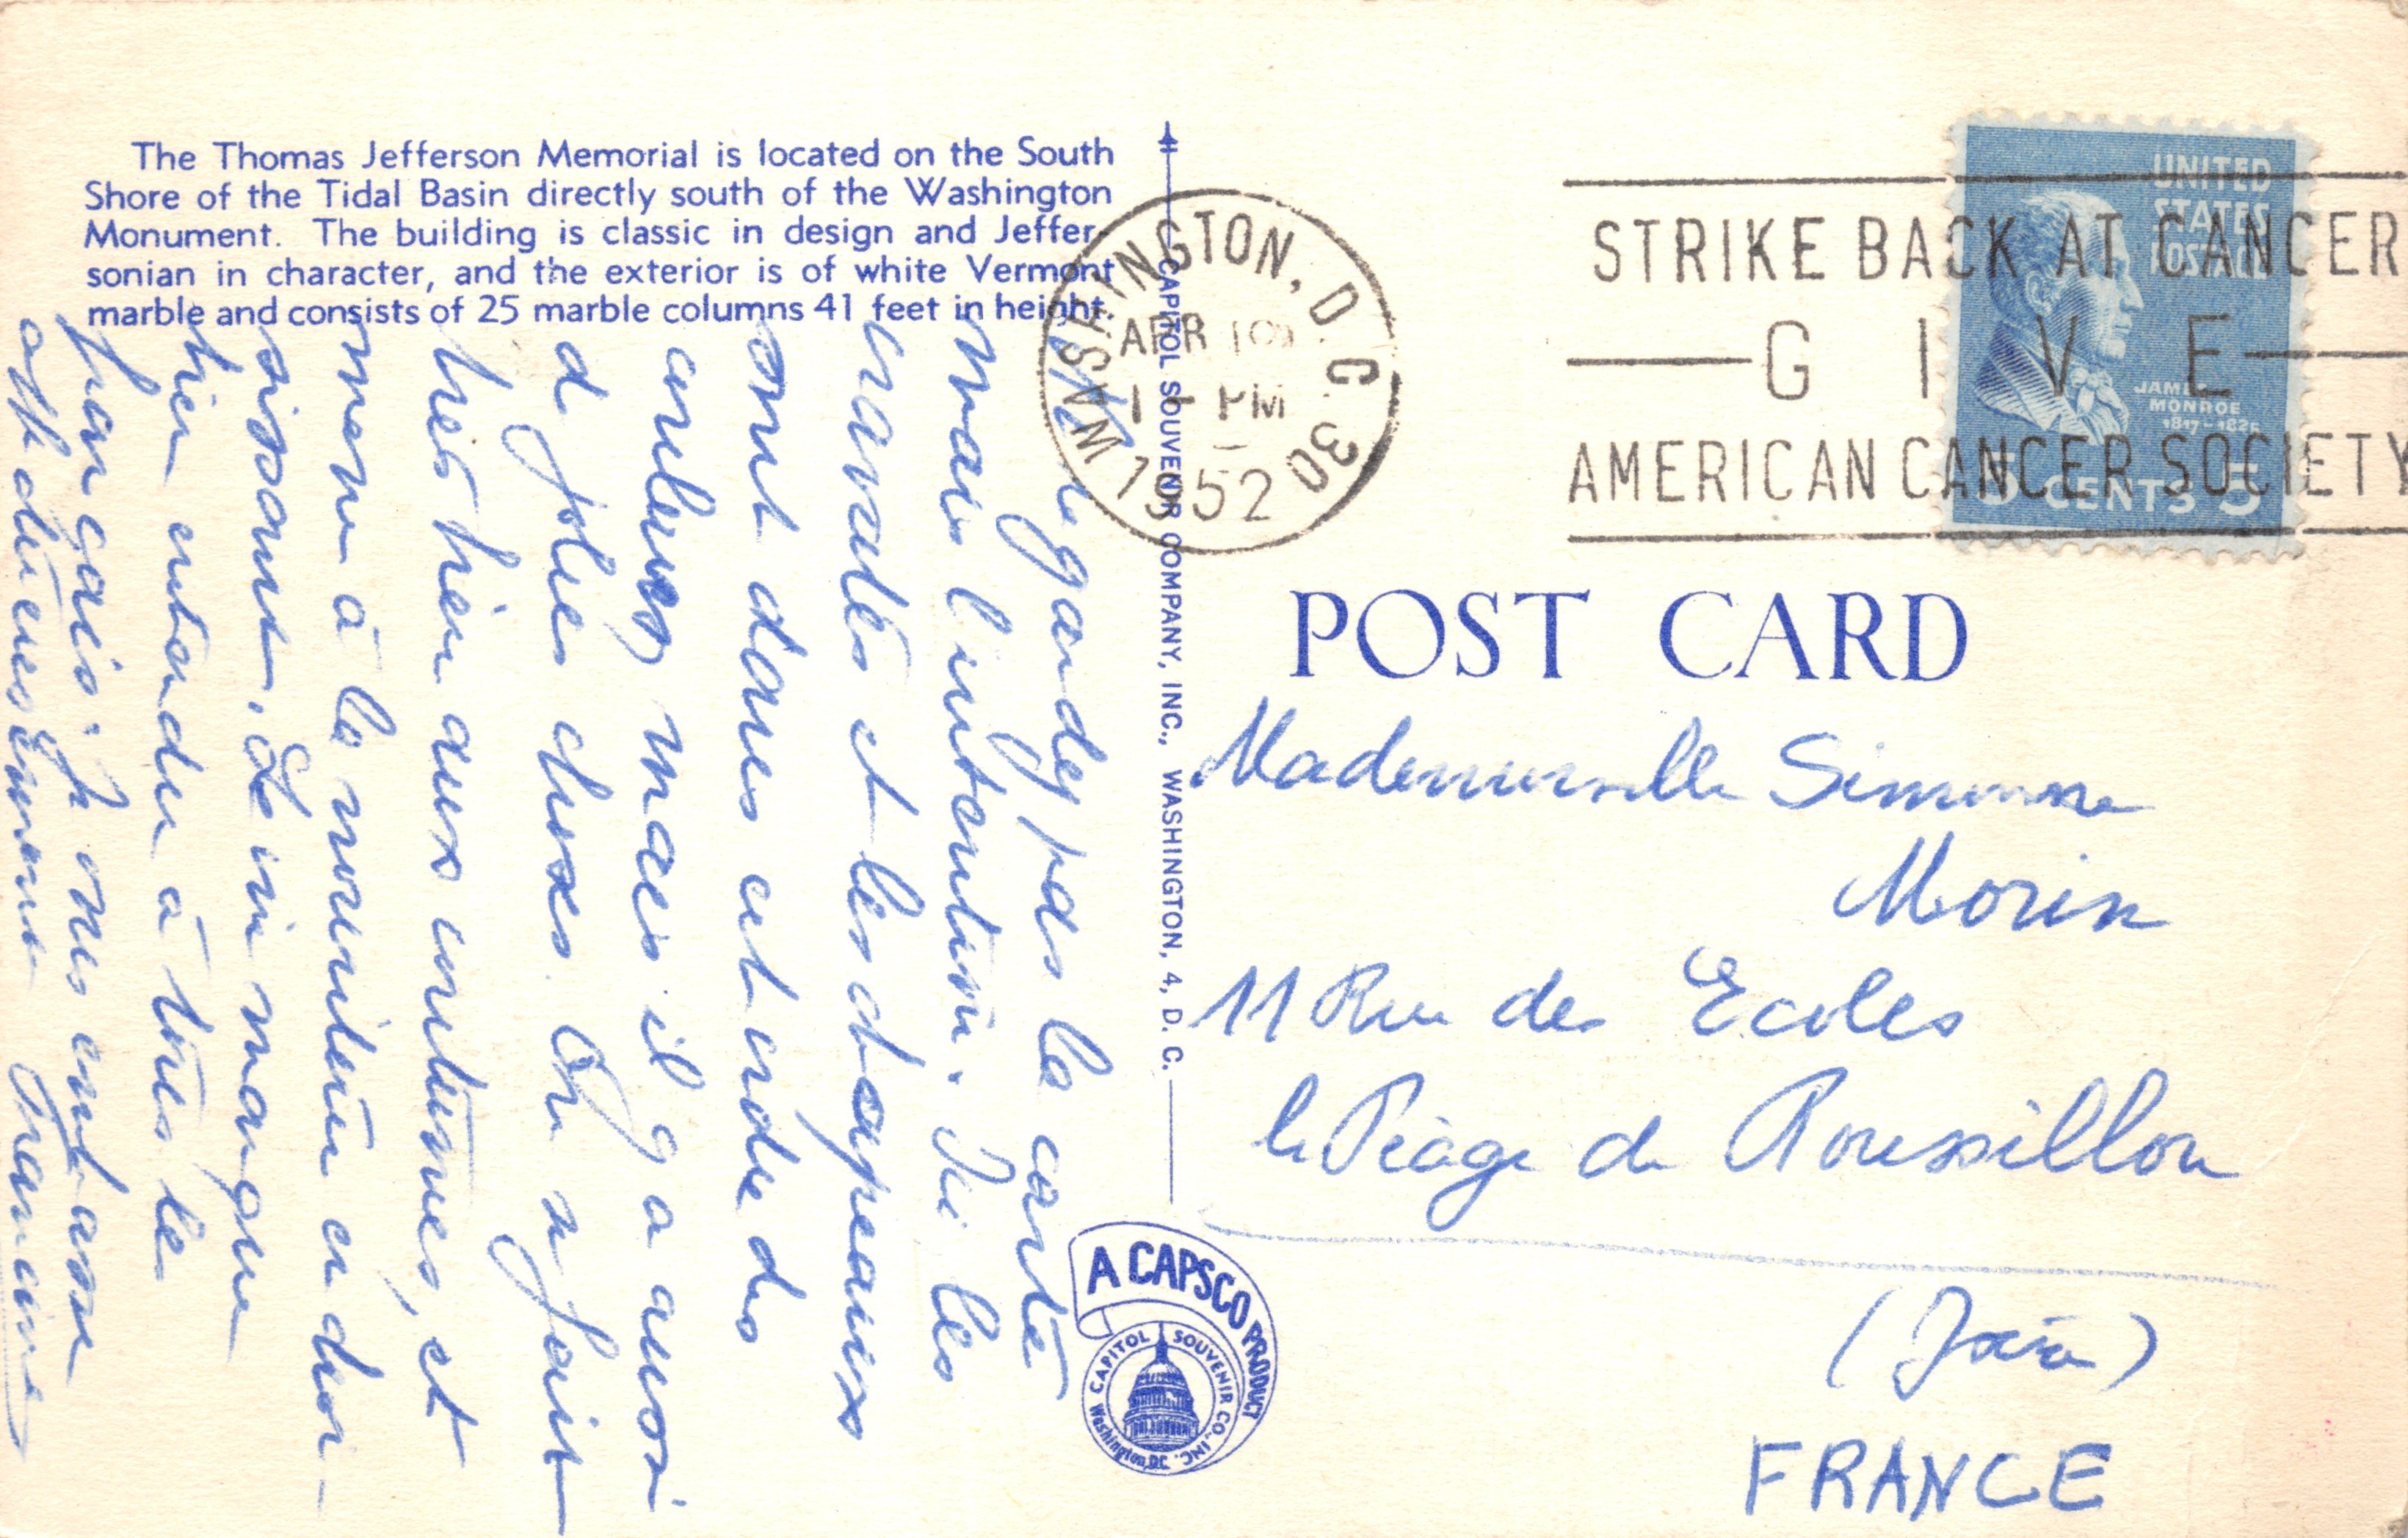 The Thomas Jefferson Memorial is located on the South
Shore of the Tidal Basin directly south of the Washington
Monument. The building is classic in design and Jeffer-
sonian in character, and the exterior is of white Vermont
marble and consists of 25 marble columns 41 feet in height.
Ne regardez pas la carte
mais l'intention. Ici les
cravates et les chapeaux
sont dans cet ordre de
couleurs mais il y a aussi
de jolies choses. On s'y fait
très bien aux coutumes, et
même à la nourriture
. Le vin manque
bien entendu à tous les
français. Je vous embrasse
Francine
CAPITOL SOUVENIR COMPANY, INC., WASHINGTON, 4, D. C.
WASHINGTON, D.C. 30
APR
PM
1952
STRIKE BACK AT CANCER
GIVE
AMERICAN CANCER SOCIETY
UNITED
STATES
POSTAGE
JAMES
MONROE
1817-1825
5 CENTS 5
POST CARD
Mademoiselle Simonne
Morin
11 Rue des Ecoles
le Péage de Roussillon
(Isère)
FRANCE
A CAPSCO PRODUCT
CAPITOL SOUVENIR CO., INC.
Washington, D.C.